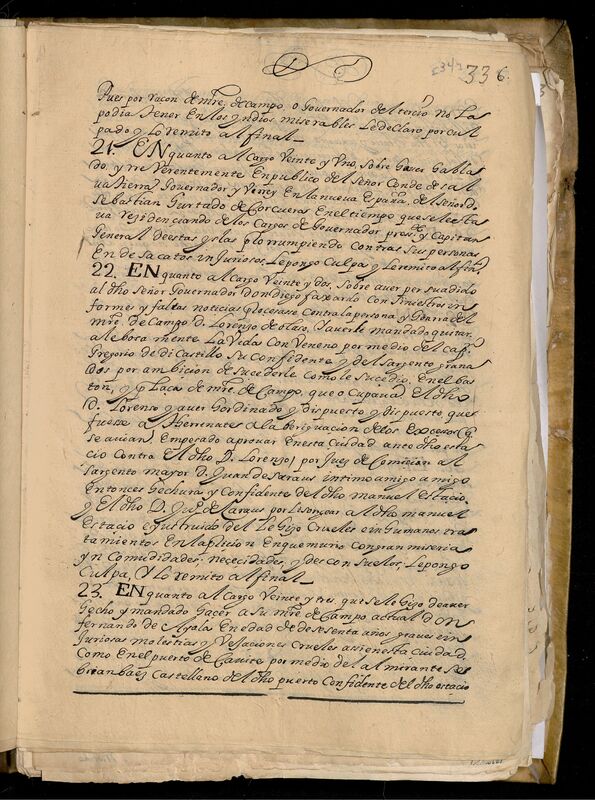 336.
Pues por racon de mre. de campo, o Governador del tercio no las
podia tener En los yndios miserables Le declaro por cul
pado y Lo remito al final
21. EN quanto al Cargo Veinte y Uno, sobre haver habla
do, y rreverentemente En publico del Señor Conde de sal
uatierra Governador y Virrey En la nueva España, de el señor D.
Sebastian hurtado de Corcuera En el tiempo que se le esta
ua residenciando de los Cargos de Governador pressidte. y Capitan
General de estas yslas prorrumpiendo contra sus personas
En desacatos injuriosos, Le pongo culpa y Lo remito al fin.
22. EN quanto al Cargo Veinte y dos, sobre aver persuadido
al dho señor Governador don diego faxardo con siniestros in
formes y falsas noticias procesase Contra la persona y honrra del
mre. de Campo D. Lorenzo de olaso, y averle mandado quitar
aleboramente La Vida Con Veneno por medio del capn.
Gregorio de di Castillo su confidente y del sargento grana
dos por ambicion de sucederle como le sucedio, En el bas
ton, y plaça de mre. de Campo, que ocupava El dho
D. Lorenzo y aver hordinado y dispuesto y dispuesto que
fuese a therrenate a la aberiguacion de los excessos q.
se avian Empesado aprovar En esta Ciudad ante dho esta
cio contra El dho D. Lorenzo, por Juez de Comicion al
sargento mayor D. Juan de saraus intimo amigo
Entonces hechura y confidente del dho manuel estacio
y El dho D. Jun. de saraus por Lisongear al dho manuel
Estacio e ynstruido del Le hizo Crueles e inhumanos tra
tamientos En la pricion En que murio con gran miseria
yn comudidades, necesidades, y desconsuelos, Le pongo
Culpa, y Lo remito al final
23. EN quanto al Cargo Veinte y tres que se le hizo de aver
hecho y mandado hacer a su mre. de campo actual don
fernando de Ayala En edad de de setenta años graves e in
juriosas molestias y Vejaciones Crueles asi en esta Ciudad,
como En el puerto de Cavite por medio del almirante Se
brian baez Castellano del dho puerto Confidente del dho estacio